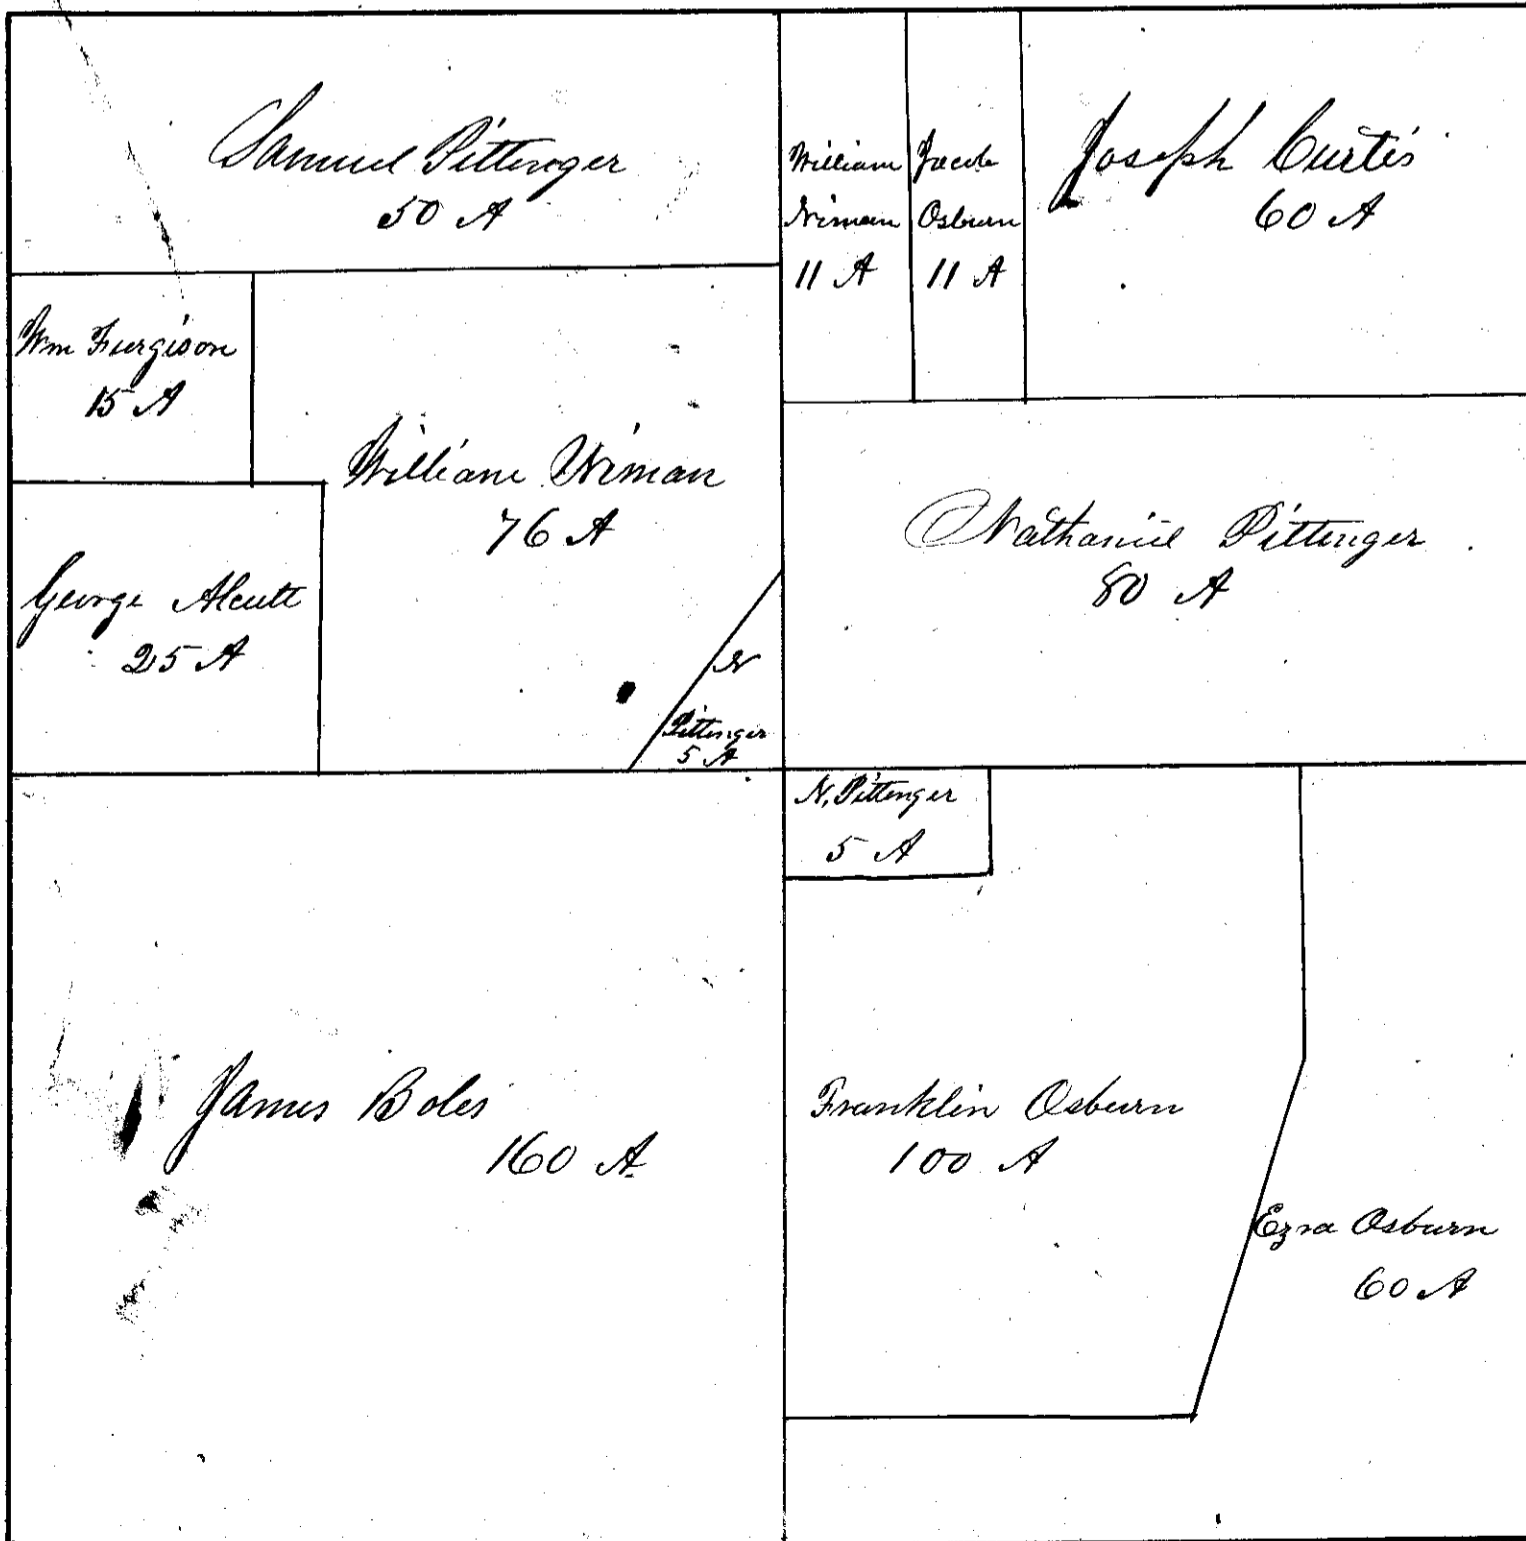 Samuel Pittenger
50 A
William
Niman
11 A
Jacob
Osburn
11 A
Joseph Curtis
60 A
Wm Furgison
15 A
William Niman
76 A
George Alcutt
25 A
N
Pittenger
5 A
Nathaniel Pittenger
80 A
N. Pittenger
5 A
James Boles
160 A
Franklin Osburn
100 A
Ezra Osburn
60 A